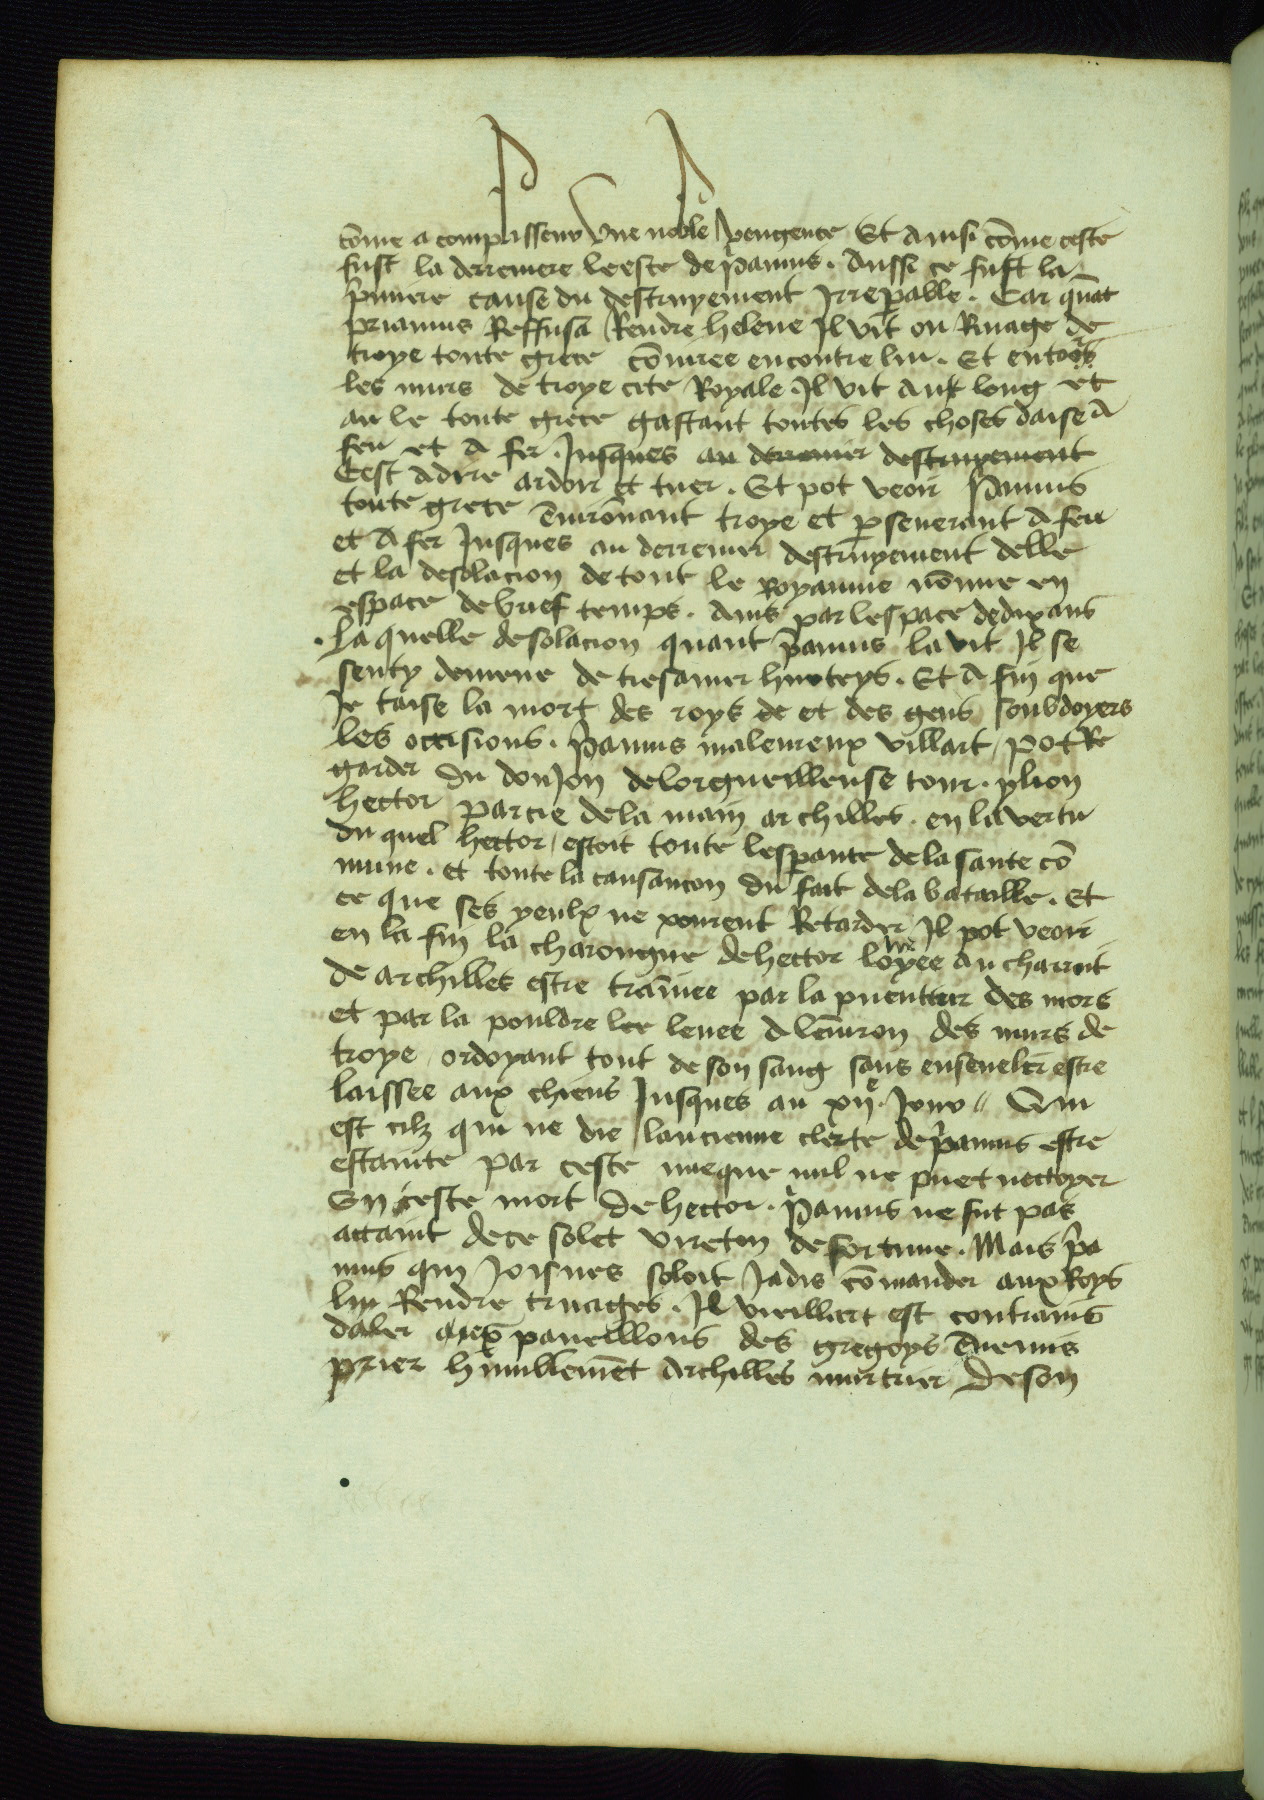 cōme a complisseur vne noble vengence Et ainsi cōme ceste
fust la derreniere leesce de p̄amus . Aussi ce fust la
p̄miere cause du destruyement Irrepable . Car quāt
priamus Reffusa Rendre helene Il vit ou Riuage de
troye toute grece cōiuree encontre lui . Et entour
les murs de troye cite Royale . Il vit au long et
au le toute grece gastant toutes les choses daise A
feu et A fer . Jusques au derrenier destruyement
Cest adire ardoir et tuer . Et pot veoir p̄amus
toute grece ēuirōnant troye et pseuerant A feu
et A fer Jusques au derrenier destruyement delle
et la desolacion de tout le royaume nōmie en
espace de brief temps . Ains par lespace de dix ans
. La quelle desolacion quant p̄amus la vit Il se
senty demene de tresamer . Et A fin que
Je taise la mort des roys de et des gens soubdoyers
les occisions . p̄amus maleureux villart / pot Re
garder du donJon de lorgueilleuse tour . ylion
hector parcie de la main archilles . en la vertu
du quel hector / estoit toute lesperance de la sante cō
mune . et toute la du fait de la bataille . Et
ce que ses yeulx ne peurent Retarder Il pot veoir
en la fin la charongne de hector loyee au chariot
de archilles estre traînee par la puenteur des mors
et par la pouldre lee leuee A lēuiron des murs de
troye / ordoyant tout de son sang sans enseuelir estre
laissee aux chiens Jusques au xije . Jour // Qui
est cilz qui ne die lancienne clerte de p̄amus estre
estainte par ceste nue que nul ne puet nettoyer
En ceste mort de hector . p̄amus ne fut pas
attaint de ce solet vireton de fortune . Mais p̄a
mus qui Joisnes soloit Jadis cōmander aux Roys
lui Rendre truages . Il vieillart est contrains
daler aux paueillons des gregoys ēnemis
prier humblemēt Archilles murtrier de son